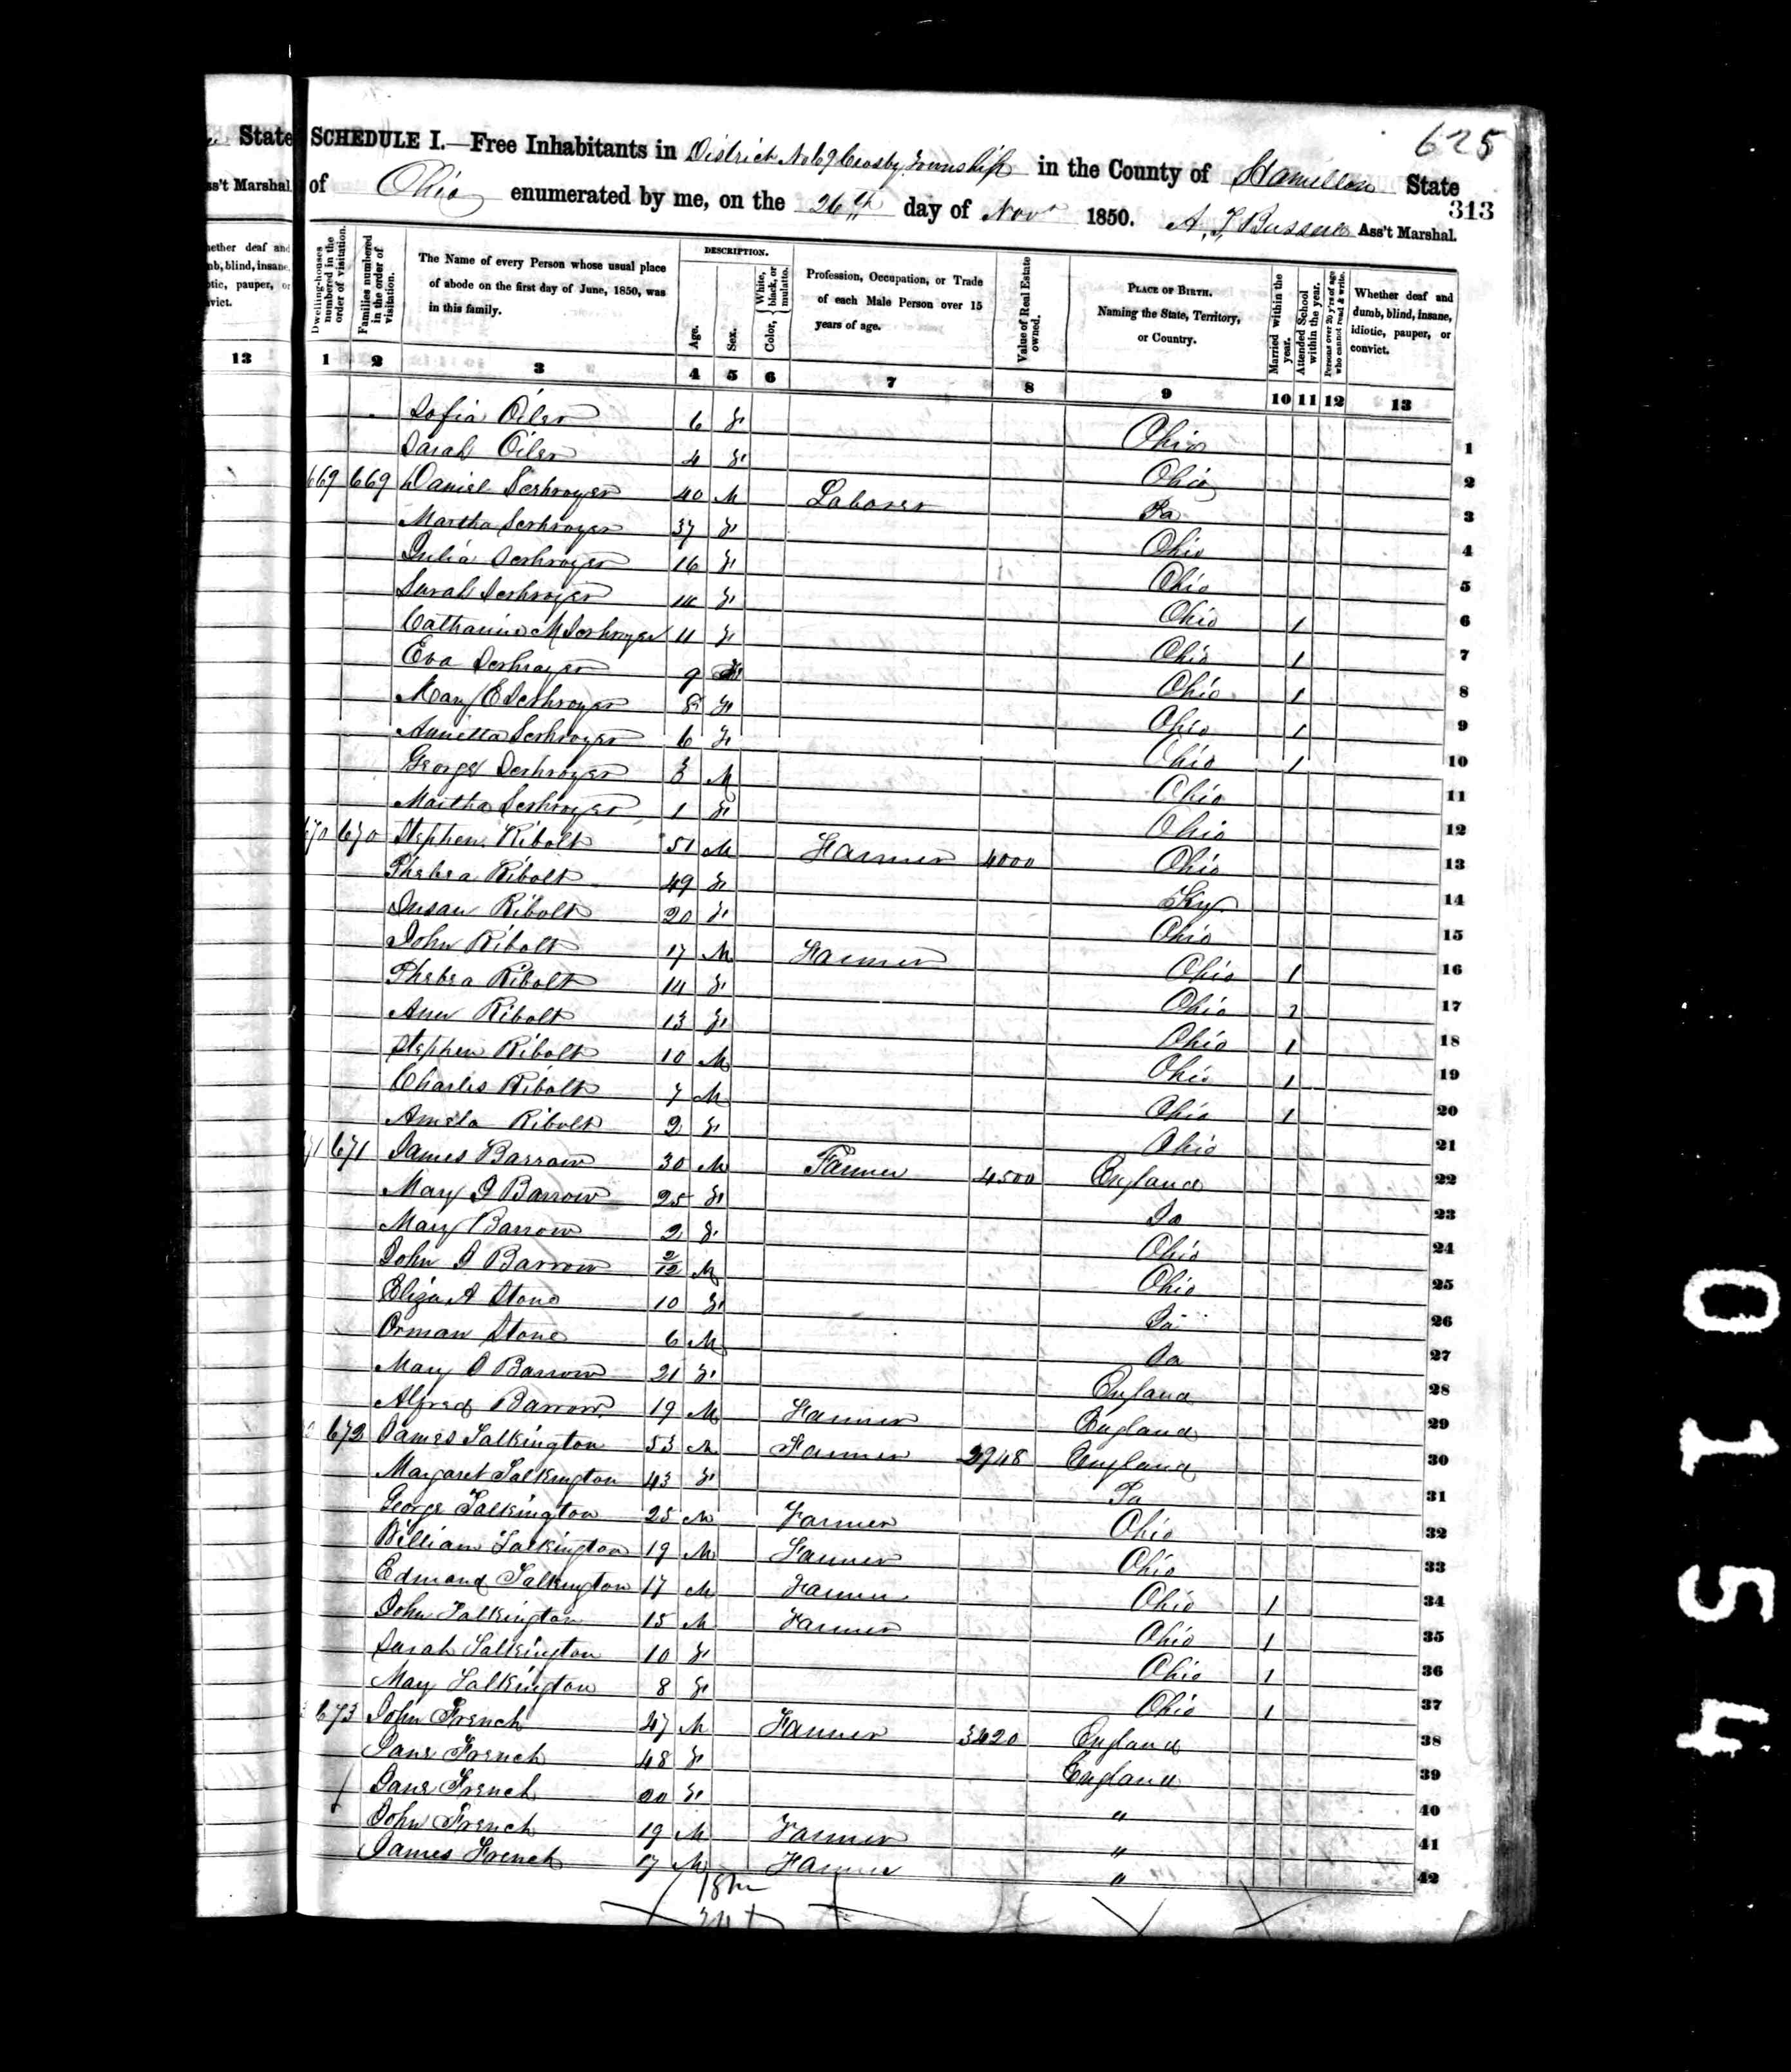 625
State SCHEDULE I.—Free Inhabitants in District No 69 Crosby Township in the County of Hamilton State
ss't Marshal. of Ohio enumerated by me, on the 26th day of Novr 1850. A. J. Ass't Marshal.
313
hether deaf and
mb, blind, insane,
otic, pauper, or
nvict.
13
Dwelling-houses numbered in the order of visitation.
Families numbered in the order of visitation.
The Name of every Person whose usual place of abode on the first day of June, 1850, was in this family.
DESCRIPTION.
Age.
Sex.
Color, White, black, or mulatto.
Profession, Occupation, or Trade of each Male Person over 15 years of age.
Value of Real Estate owned.
PLACE OF BIRTH. Naming the State, Territory, or Country.
Married within the year.
Attended School within the year.
Persons over 20 y'rs of age who cannot read & write.
Whether deaf and dumb, blind, insane, idiotic, pauper, or convict.
1 2 3 4 5 6 7 8 9 10 11 12 13
Sofia Oiler 6 F Ohio 1
Sarah Oiler 4 F Ohio 2
669 669 Daniel Deshroyer 40 M Laborer Pa 3
Martha Deshroyer 37 F Ohio 4
Julia Deshroyer 16 F Ohio 5
Sarah Deshroyer 14 F Ohio 1 6
Catharine M Deshroyer 11 F Ohio 1 7
Eva Deshroyer 9 F Ohio 1 8
Mary E Deshroyer 8 F Ohio 1 9
Annetta Deshroyer 6 F Ohio 1 10
George Deshroyer 3 M Ohio 11
Martha Deshroyer 1 F Ohio 12
670 670 Stephen Ribolt 51 M Farmer 4000 Ohio 13
Phebea Ribolt 49 F Ky 14
Susan Ribolt 20 F Ohio 15
John Ribolt 17 M Farmer Ohio 1 16
Phebea Ribolt 14 F Ohio 1 17
Ann Ribolt 13 F Ohio 1 18
Stephen Ribolt 10 M Ohio 1 19
Charles Ribolt 7 M Ohio 1 20
Amela Ribolt 2 F Ohio 21
71 671 James Barrow 30 M Farmer 4500 England 22
Mary J Barrow 25 F Pa 23
Mary Barrow 2 F Ohio 24
John J Barrow 2/12 M Ohio 25
Eliza A Stone 10 F Pa 26
Orman Stone 6 M Pa 27
Mary Barrow 21 F England 28
Alfred Barrow 19 M Farmer England 29
672 James Talkington 53 M Farmer 2948 England 30
Margaret Talkington 43 F Pa 31
George Talkington 25 M Farmer Ohio 32
William Talkington 19 M Farmer Ohio 33
Edmond Talkington 17 M Farmer Ohio 1 34
John Talkington 15 M Farmer Ohio 1 35
Sarah Talkington 10 F Ohio 1 36
Mary Talkington 8 F Ohio 1 37
673 John French 47 M Farmer 3420 England 38
Jane French 48 F England 39
Jane French 20 F " 40
John French 19 M Farmer " 41
James French 17 M Farmer " 42
0154